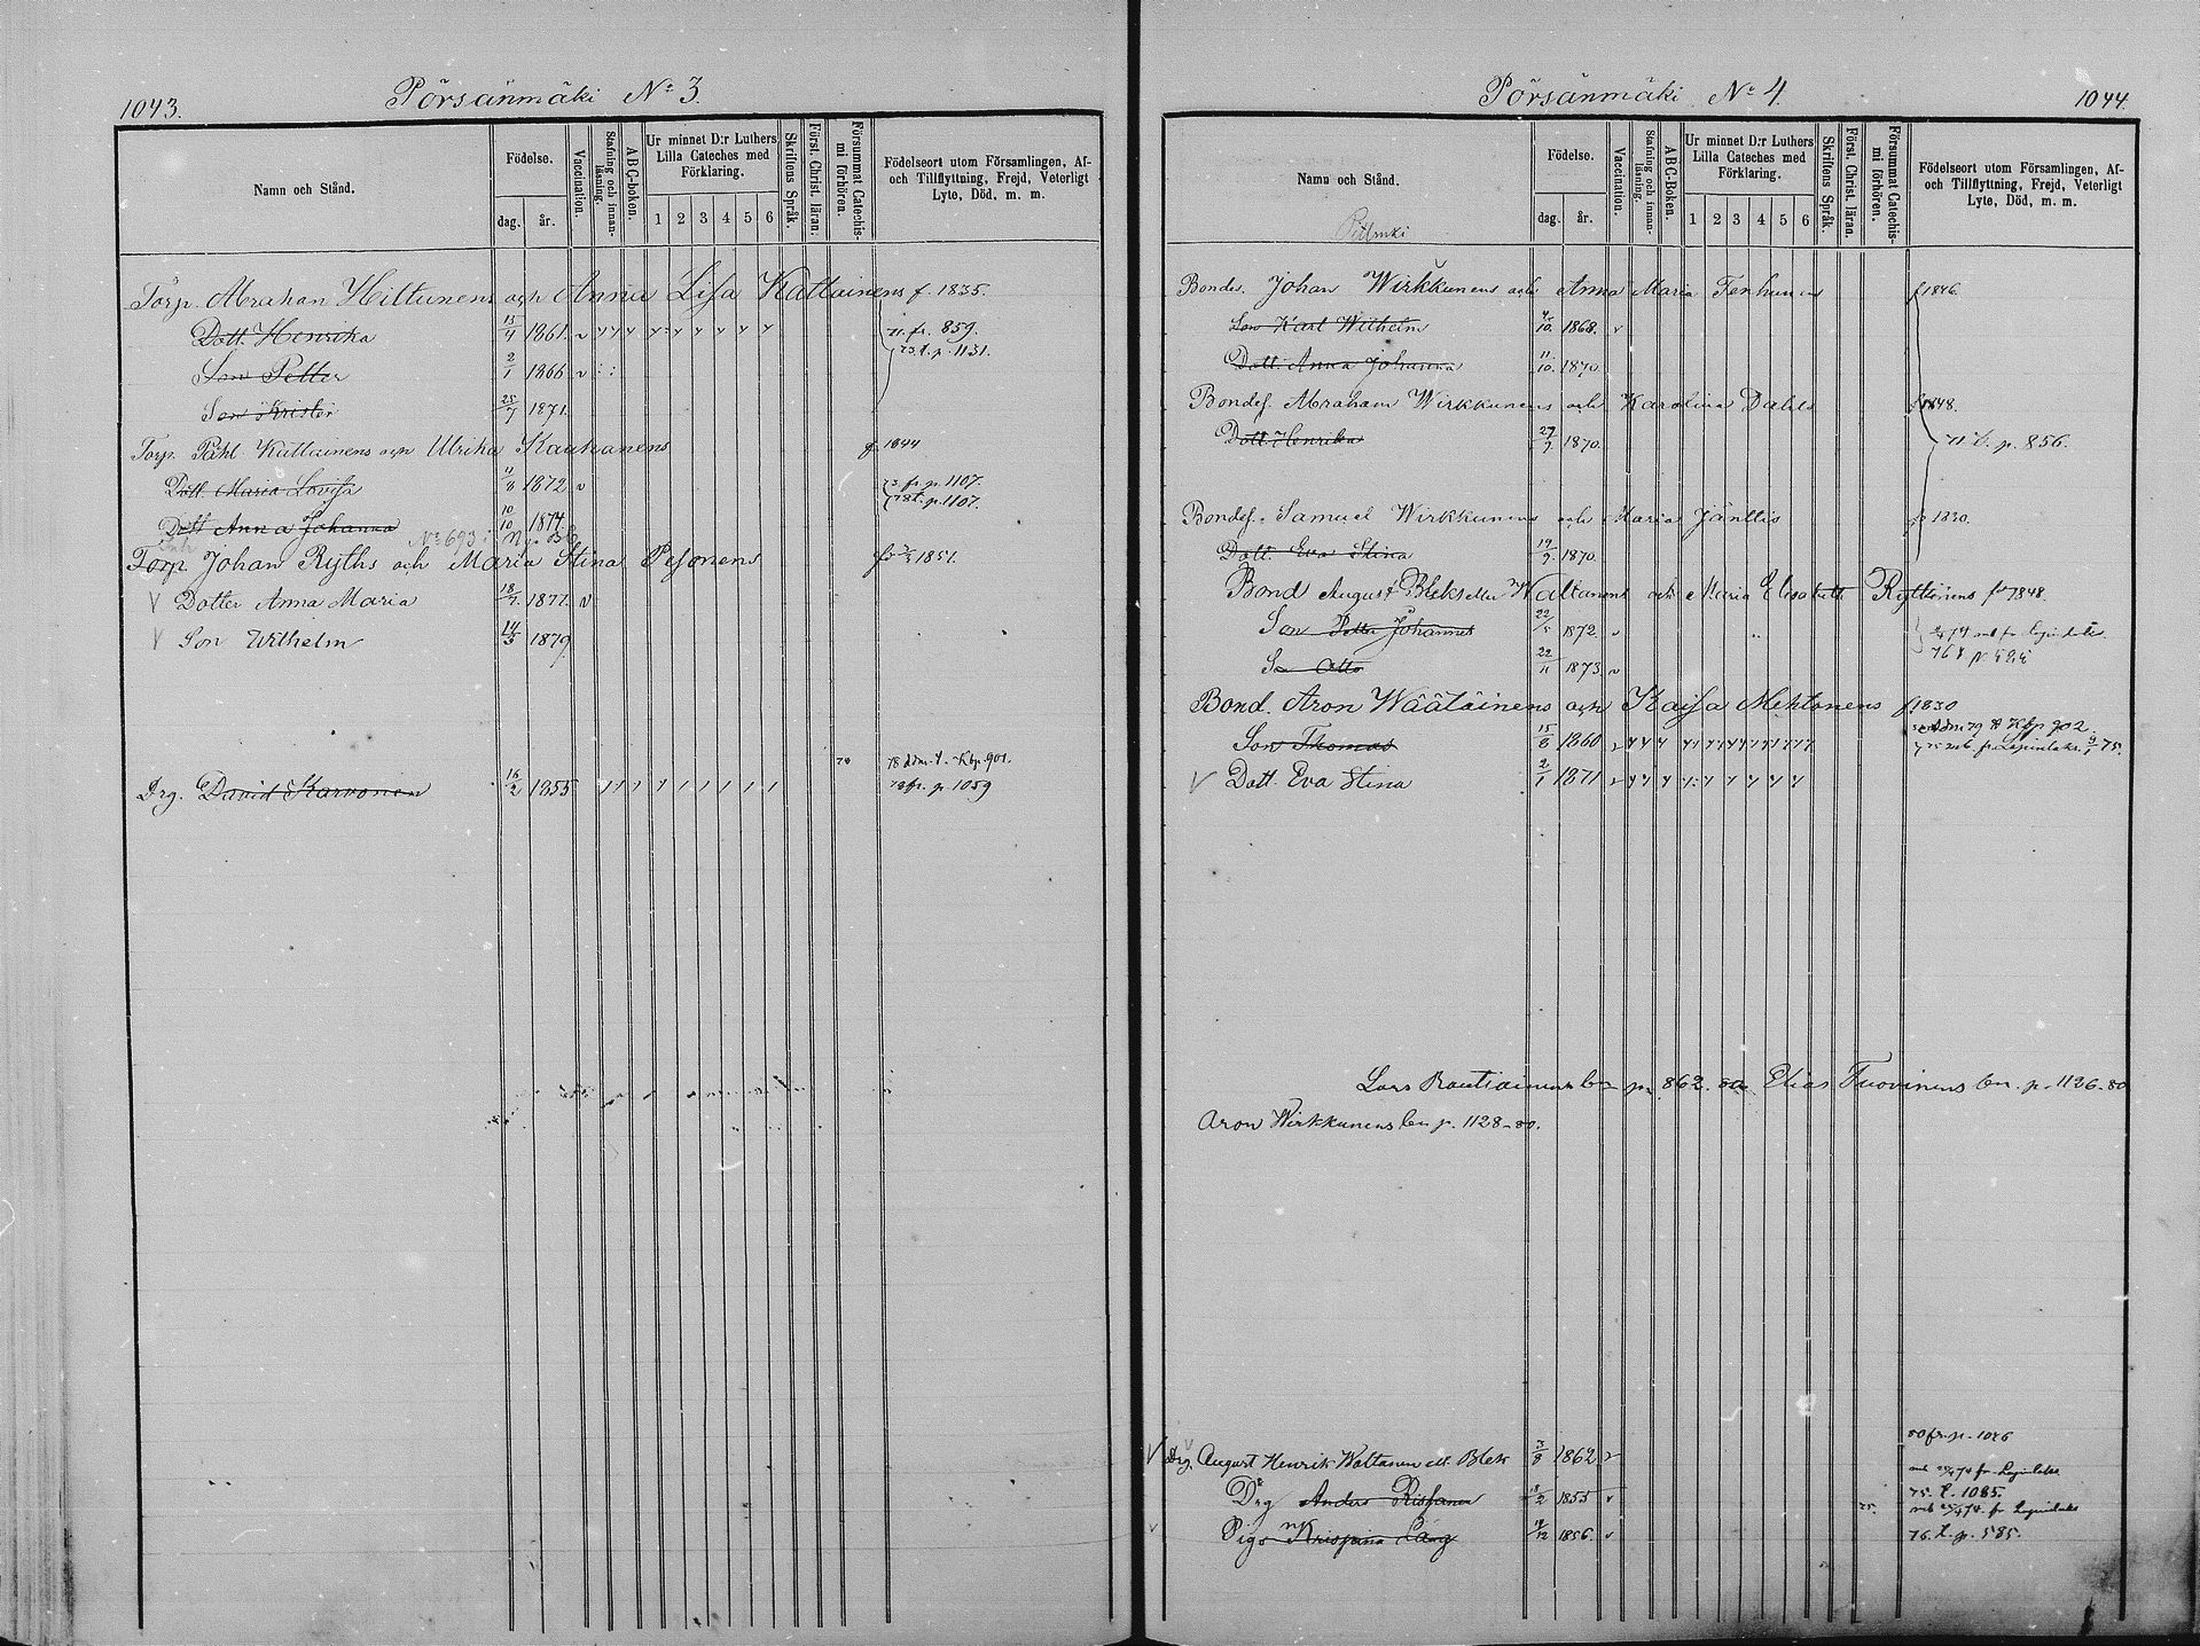 1043.
Pörsänmäki No 3.
Namn och Stånd.
Födelse.
dag.
år.
Vaccination.
Stafning och innan-läsning.
ABC-boken.
Ur minnet D:r Luthers Lilla Cateches med Förklaring.
1 2 3 4 5 6
Skriftens Språk.
Först. Christ. läran.
Försummat Catechis-mi förhören.
Födelseort utom Församlingen, Af- och Tillflyttning, Frejd, Veterligt Lyte, Död, m. m.
Torp. Abraham Hiltunens och Anna Lisa Kattainens f. 1835.
Dott. Henrika 13/4 1861. 71. fr. 859.
73. t. p. 1131.
Son Petter 2/1 1866
Son Krister 25/7 1871.
Torp. Påhl Kattainens och Ulrika Kaukanens f. 1844
Dott. Maria Lovisa 11/8 1872 73 fr. p. 1107.
78 t. p. 1107.
Dott Anna Johanna 10/10 1874.
No 693
Torp. Johan Ryths och Maria Stina Pesonens 1851.
Dotter Anna Maria 18/7. 1877.
Son Wilhelm 14/3 1879.
78 adm. t. Kbp. 901.
Drg. David Karvonen 16/2 1855 78 fr. p. 1059
Pörsänmäki No 4.
1044.
Namn och Stånd.
Födelse.
dag.
år.
Vaccination.
Stafning och innan-läsning.
ABC-Boken.
Ur minnet D:r Luthers Lilla Cateches med Förklaring.
1 2 3 4 5 6
Skriftens Språk.
Först. Christ. läran.
Försummat Catechis-mi förhören.
Födelseort utom Församlingen, Af- och Tillflyttning, Frejd, Veterligt Lyte, Död, m. m.
Bondes. Johan Wirkkunens och Anna Maria Tenhunens f 1846.
Son Karl Wilhelm 4/10. 1868.
Dott. Anna Johanna 11/10. 1870.
Bondes. Abraham Wirkkunens och Karolina Dahls f 1848.
Dott. Henrika 27/7 1870. 71. t. p. 856.
Bondes. Samuel Wirkkunens och Maria Jänttis 1830.
Dott. Eva Stina 19/9. 1870.
Bond August Blek eller Waltanens och Maria Elisabeth Ryttönens 1848.
Son Petter Johannes 22/5 1872.
Son Otto 22/11 1873.
Bond. Aron Wäätäinens och Kaisa Mehtonens f. 1830
Son Thomas 15/8 1860 79 t Kbp 902
Dott. Eva Stina 2/1 1871
Lars Rautiainens p. 862. 80. Elias Tuovinens p. 1126-80
Aron Wirkkunens p. 1128-80.
80 fr. p. 1046
Drg. August Henrik Waltanen ell. Blek 3/8 1862
Drg Anders Rissanen 18/2 1855 75. t. 1085.
Piga Krispina Lång 12 1856. 76. t. p. 585.